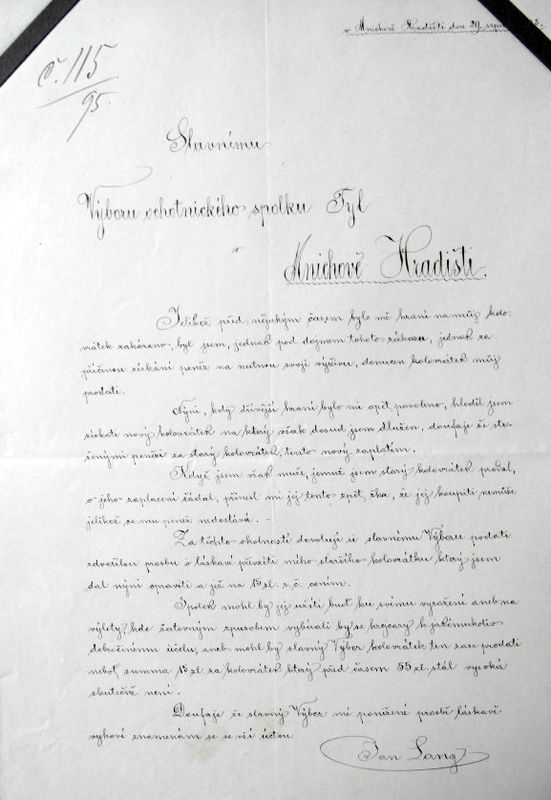 v Mnichově Hradišti dne 29. srpna
č. 115
95.
Slavnímu
Výboru ochotnického spolku Tyl
v
Mnichově Hradišti.
Jelikož před nějakým časem bylo mě hraní na můj kolo-
vrátek zakázano, byl jsem, jednak pod dojmem tohoto zákazu, jednak za
příčinou získání peněz na nutnou svoji výživu, donucen kolovrátek můj
prodati.
Nyní, kdy dřívější hraní bylo mi opět povoleno, hleděl jsem
získati nový kolovrátek na který však dosud jsem dlužen, doufaje že str-
ženými penězi za starý kolovrátek, tento nový zaplatím.
Když jsem však muže, jemuž jsem starý kolovrátek prodal,
o jeho zaplacení žádal, přinesl mi jej tento zpět, řka, že jej koupiti nemůže
jelikož se mu peněz nedostává.
Za těchto okolností dovoluji si slavnému Výboru podati
zdvořilou prosbu o láskavé převzetí mého staršího kolovrátku který jsem
dal nyní opraviti a jež na 15 zl. r. č. cením.
Spolek mohl by jej užíti buď ku svému vyražení aneb na
výlety, kde žertovným způsobem vybírali by se krejcary k jakémukoliv
dobročinému účelu, aneb mohl by slavný Výbor kolovrátek ten zase prodati
neboť summa 15 zl za kolovrátek který před časem 55 zl. stál vysoká
skutečně není.
Doufaje že slavný Výbor mé ponížené prosbě láskavě
vyhoví znamenám se se vší úctou
Jan Lang